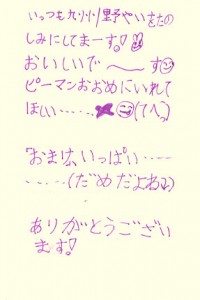 いっつも九州野やいをたの
しみにしてまーす。!
おいしいで〜す
ピーマンおおめにいれて
ほしい・・・・・・(てへっ)
「おまけ、いっぱい・・・・・
・・・・・・(だめだよね)
ありがとうござい
ます!